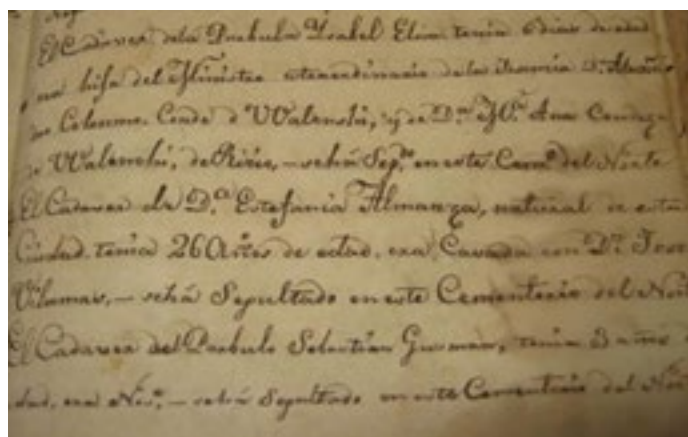 El Cadaver dela Parbula Ysabel Elim tenia 6 dias de edad
era hija del Ministro de la Francia Dn.
Colonna. Conde d VValenski, y de Da. Ma. Ana
de VValenski, de — sehá Sep.do en este Cemo. del Norte
El Cadaver de D.a Estefania Almanza, natural de esta
Ciudad. tenia 26 Años de edad. era Casada con Dn. Jose
— sehá Sepultado en este Cementerio del Norte
El Cadaver del Parbulo Sebastian Gusman, tenia 3 años
edad, era — sehá Sepultado en este Cementerio del Norte